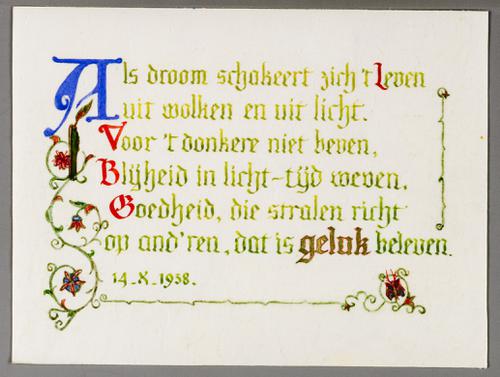 Als droom schakeert zich 't Leven
uit wolken en uit licht.
Voor 't donkere niet beven,
Blijheid in licht-tijd weven,
Goedheid, die stralen richt
op and'ren, dat is geluk beleven.
14-X-1938.